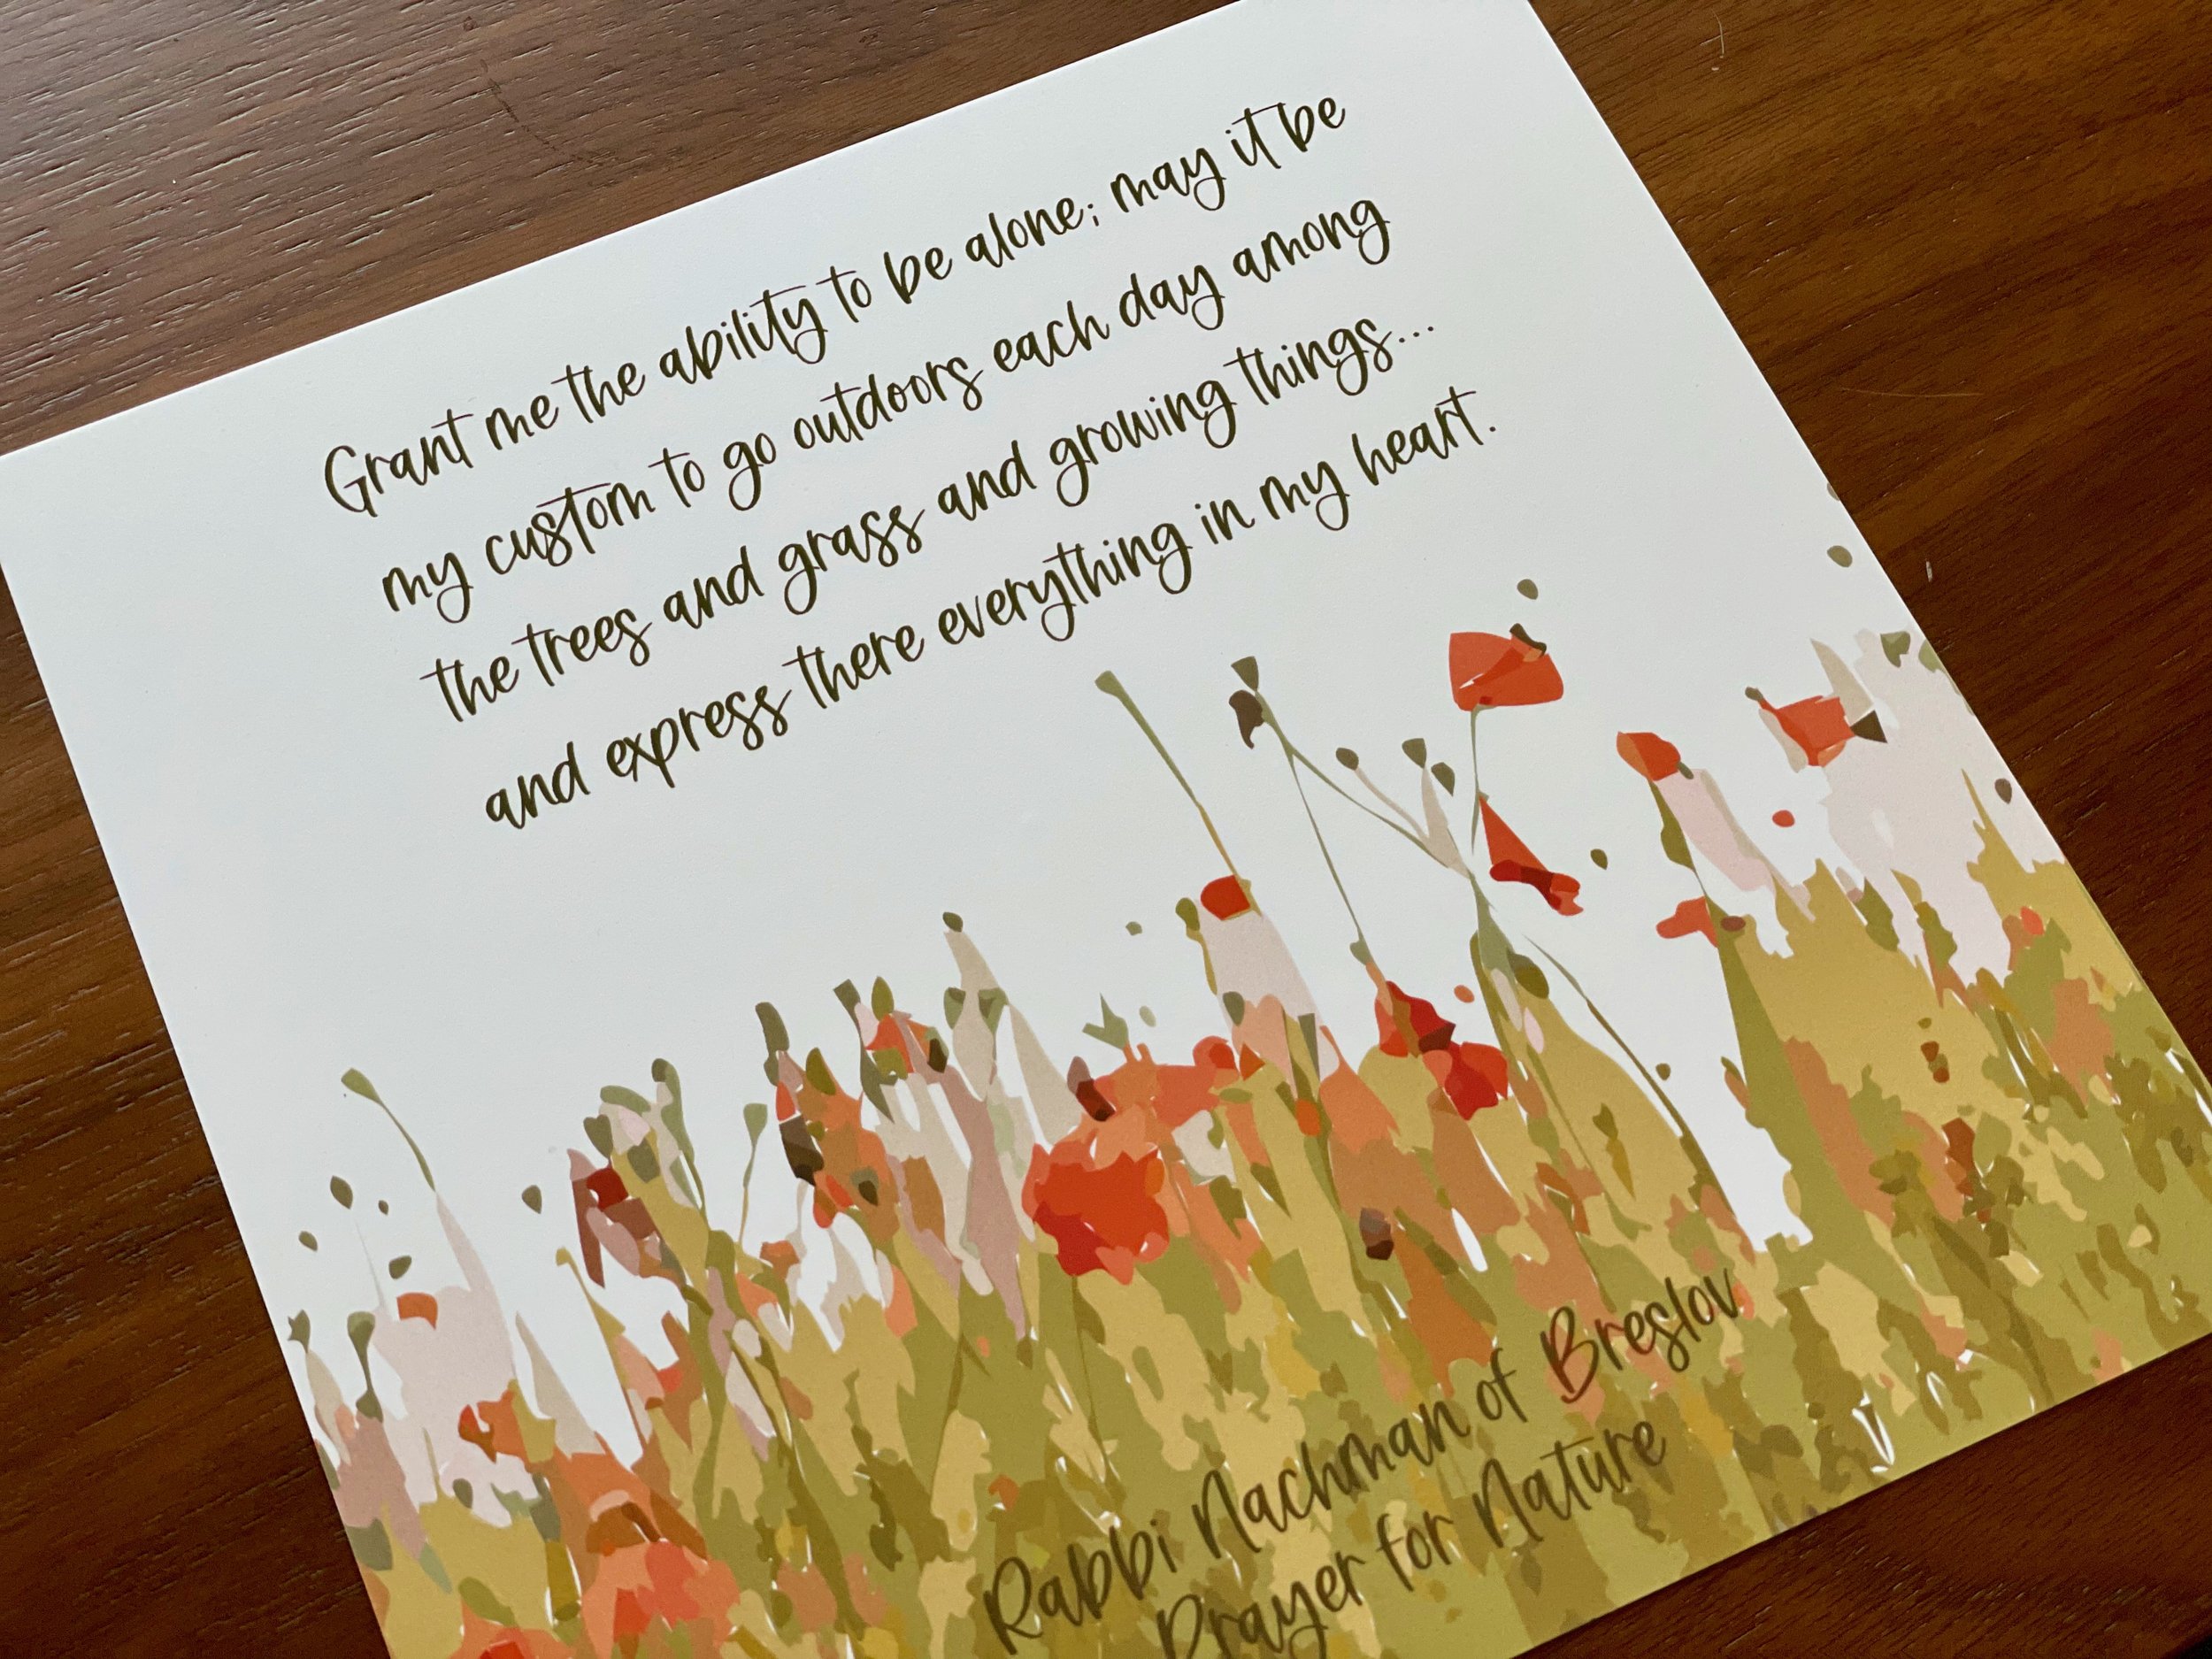 Grant me the ability to be alone; may it be
my custom to go outdoors each day among
the trees and grass and growing things...
and express there everything in my heart.
Rabbi Nachman of Breslov
Prayer for Nature